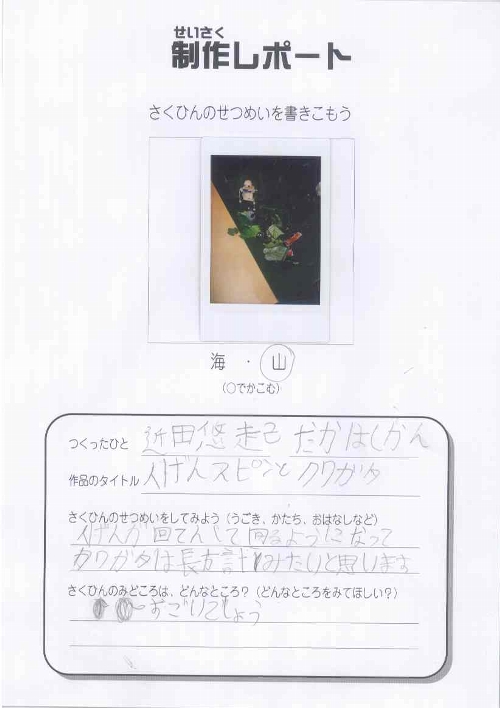 せいさく
制作レポート
さくひんのせつめいを書きこもう
海 ・ 山
(○でかこむ)
つくったひと 近田悠起 だかはしかん
作品のタイトル 人げんスピンとクワガタ
さくひんのせつめいをしてみよう(うごき、かたち、おはなしなど)
人げんが回てんして回るようになって
クワガタは長方計みたいと思います
さくひんのみどころは、どんなところ?(どんなところをみてほしい?)
でしょう